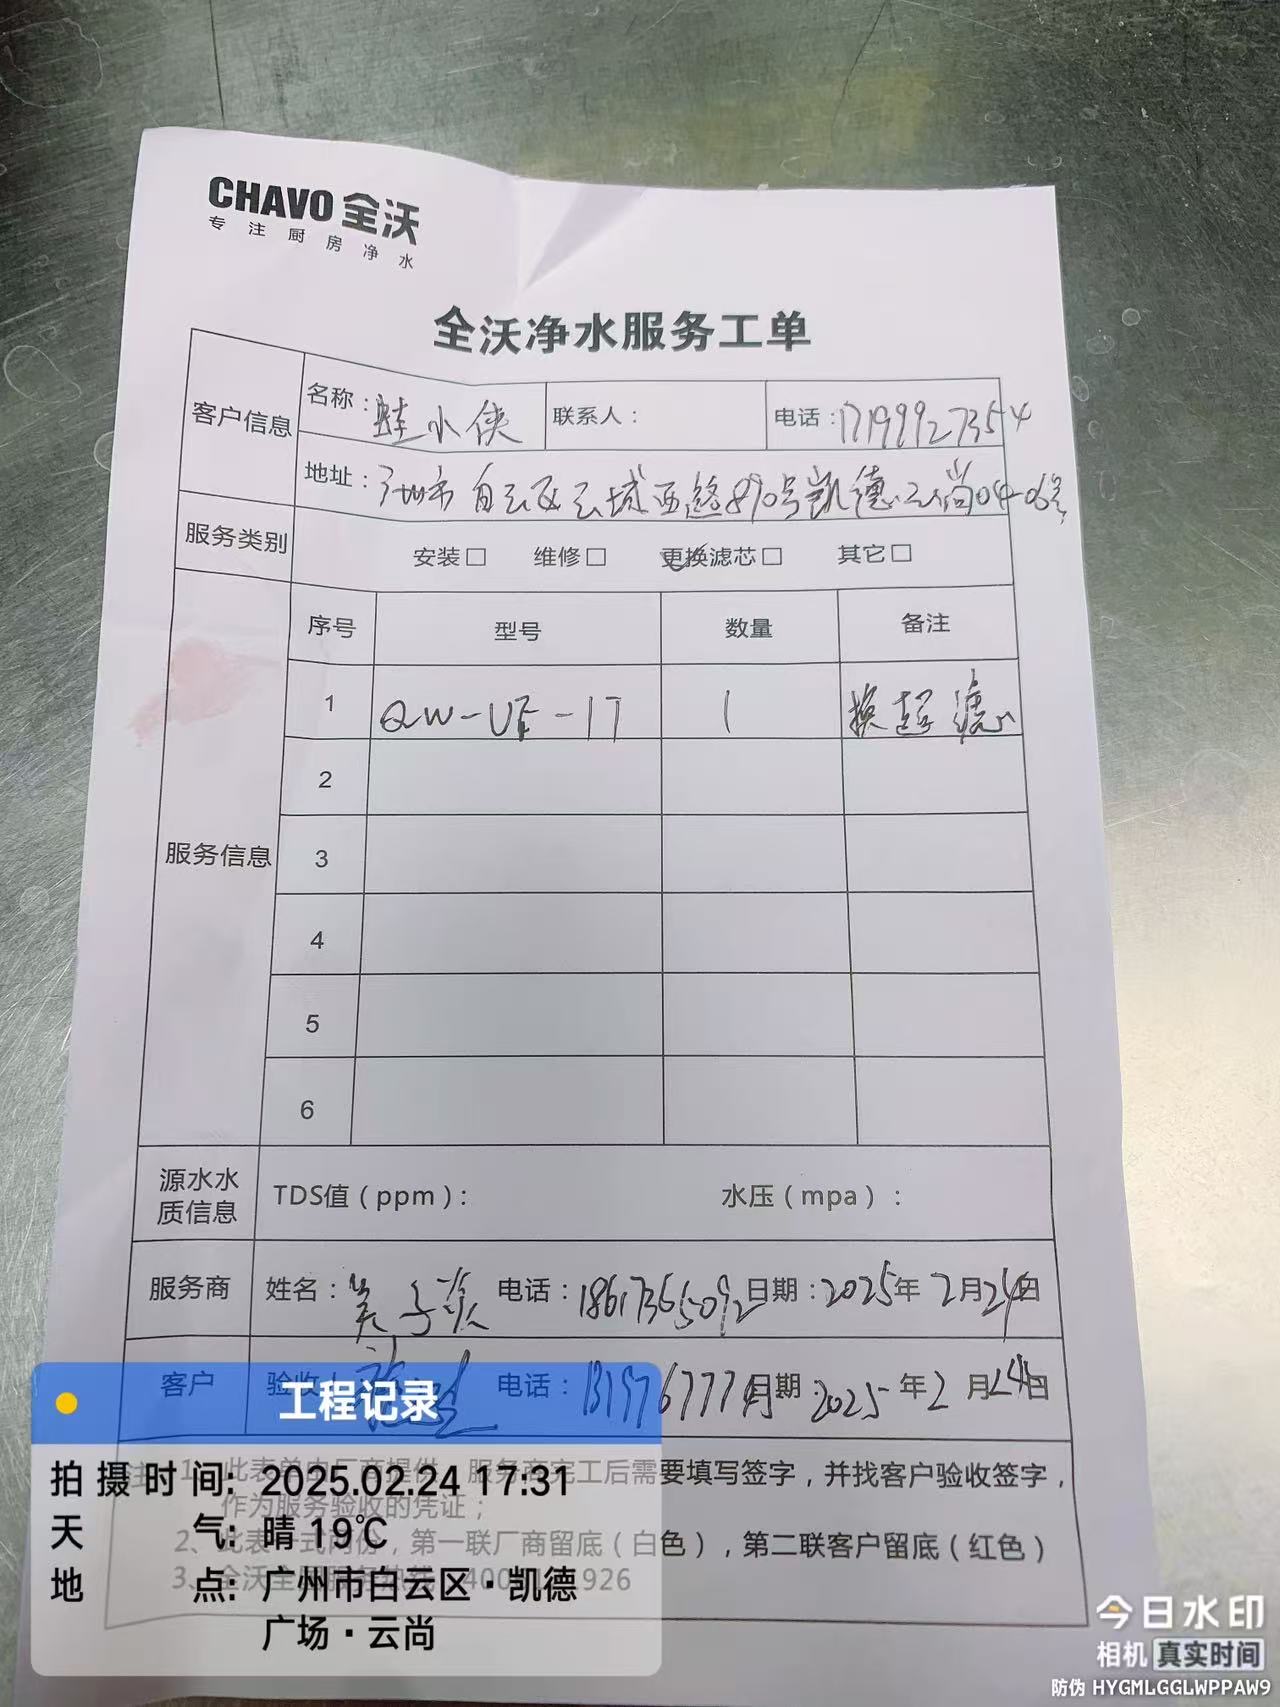 CHAVO 全沃
专注厨房净水
全沃净水服务工单
客户信息
名称：蛙小侠
联系人：
电话：17199927354
地址：广州市白云区云城西路890号凯德云尚04-06号
服务类别
安装□ 维修□ 更换滤芯□ 其它□
服务信息
序号 型号 数量 备注
1 QW-UF-1T 1 换超滤
2
3
4
5
6
源水水质信息
TDS值（ppm）： 水压（mpa）：
服务商 姓名： 电话：18617365092 日期：2025年2月24日
客户 验收 电话： 期 2025年2月24日
1、此表单由厂商提供，服务商完工后需要填写签字，并找客户验收签字，
作为服务验收的凭证；
2、此表一式两份，第一联厂商留底（白色），第二联客户留底（红色）
3、全沃全国服务热线 926
工程记录
拍摄时间: 2025.02.24 17:31
天气: 晴 19℃
地点: 广州市白云区·凯德
广场·云尚
今日水印
相机 真实时间
防伪 HYGMLGGLWPPAW9